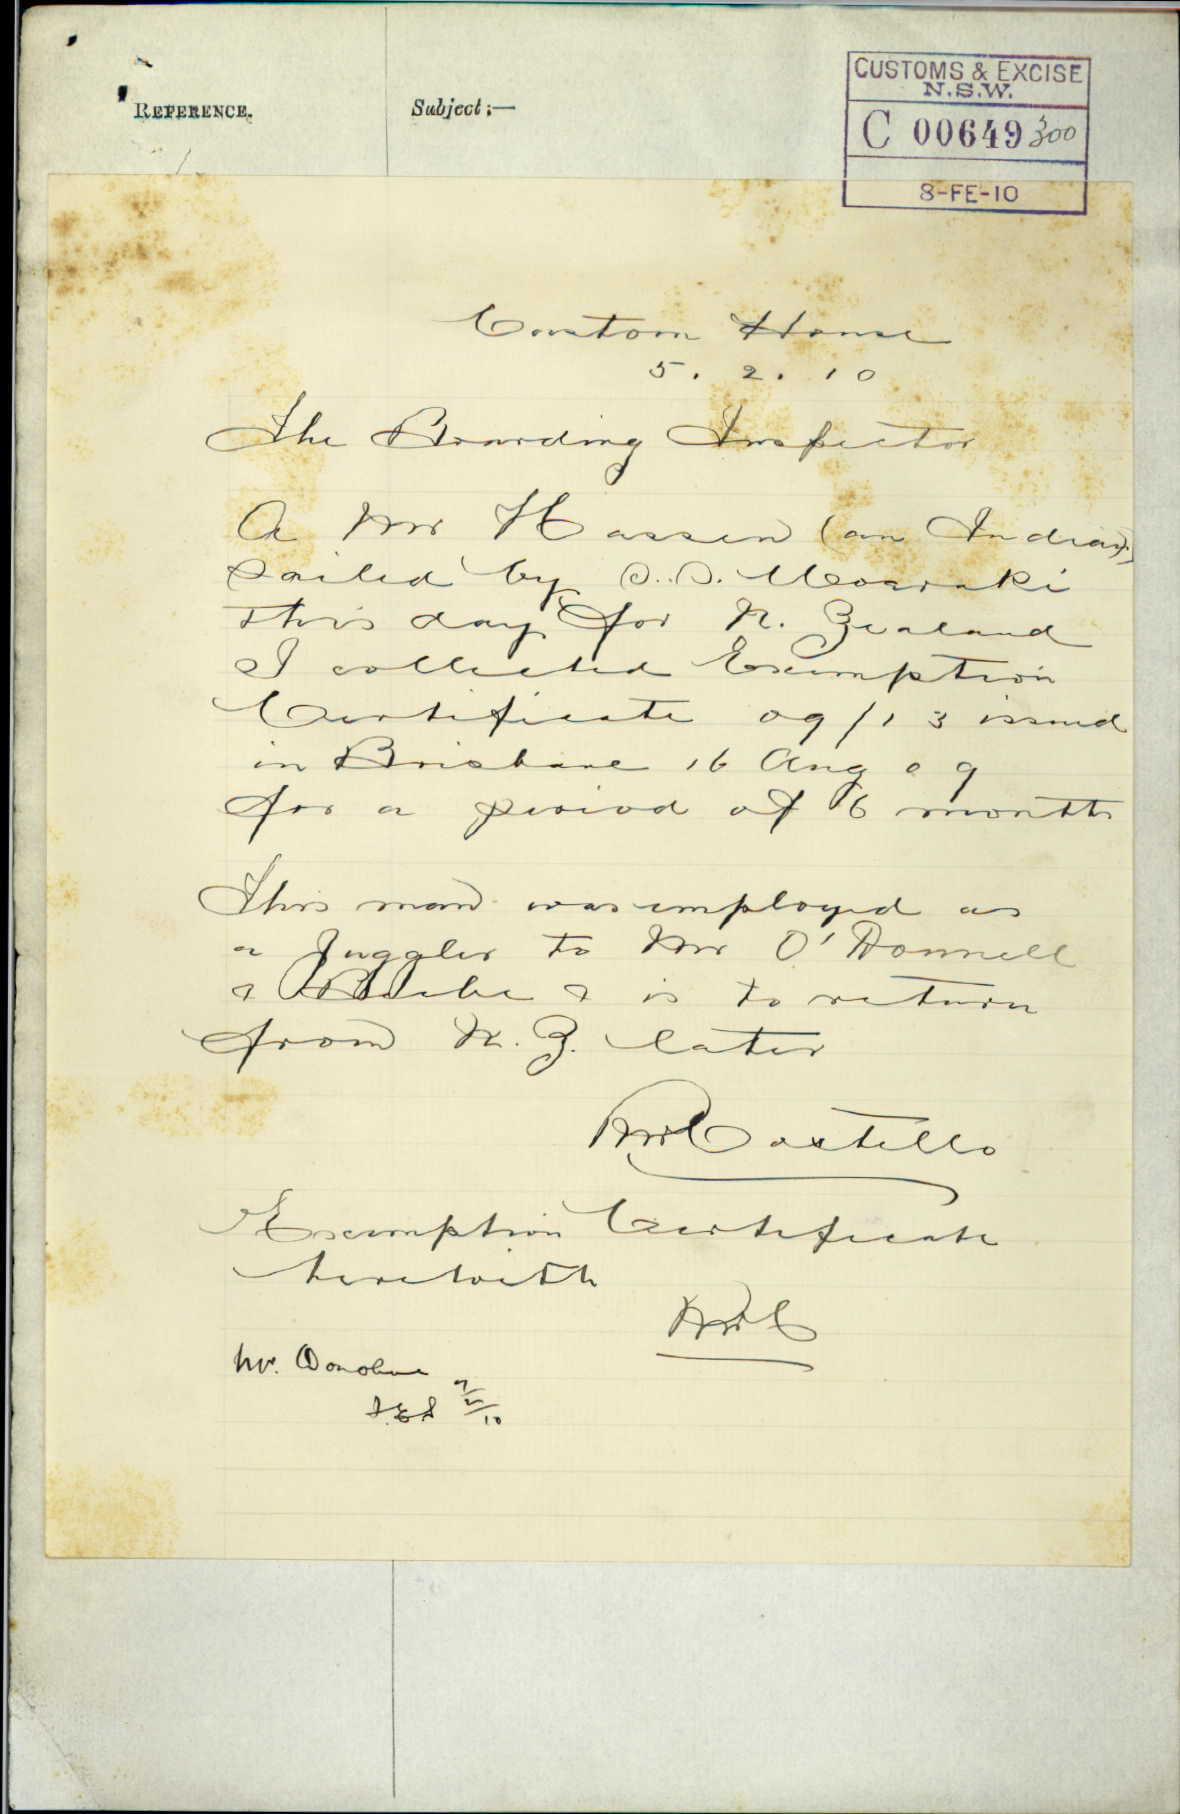 REFERENCE.
Subject :—
CUSTOMS & EXCISE
N.S.W.
C 00649 300
8-FE-10
Custom House
5. 2. 10
The Boarding Inspector
A Mr Hassen (an Indian)
sailed by S.S.
this day for N. Zealand
I collected Exemption
Certificate 09/13 issued
in Brisbane 16 Aug 09
for a period of 6 months
This man was employed as
a Juggler to Mr O'Donnell
& & is to return
from N. Z. later
Costello
Exemption Certificate
herewith
Mr. Donohue
/10